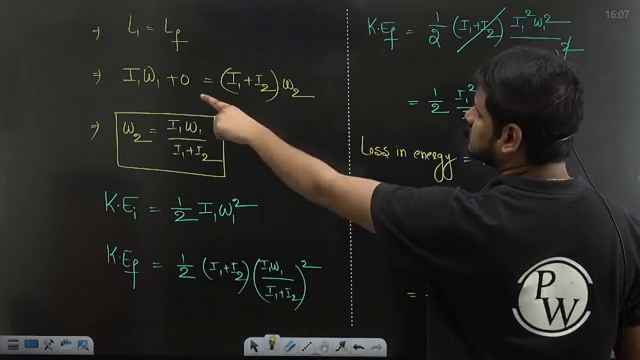 ⇒ L₁ = L_f
⇒ I₁ω₁ + 0 = (I₁+I₂)ω₂
⇒ ω₂ = I₁ω₁ / (I₁+I₂)
K·Eᵢ = 1/2 I₁ω₁²
K·E_f = 1/2 (I₁+I₂) (I₁ω₁ / (I₁+I₂))²
K·E_f = 1/2 (I₁+I₂) I₁²ω₁²
= 1/2 I₁²
Loss in energy =
=
PW
16:07